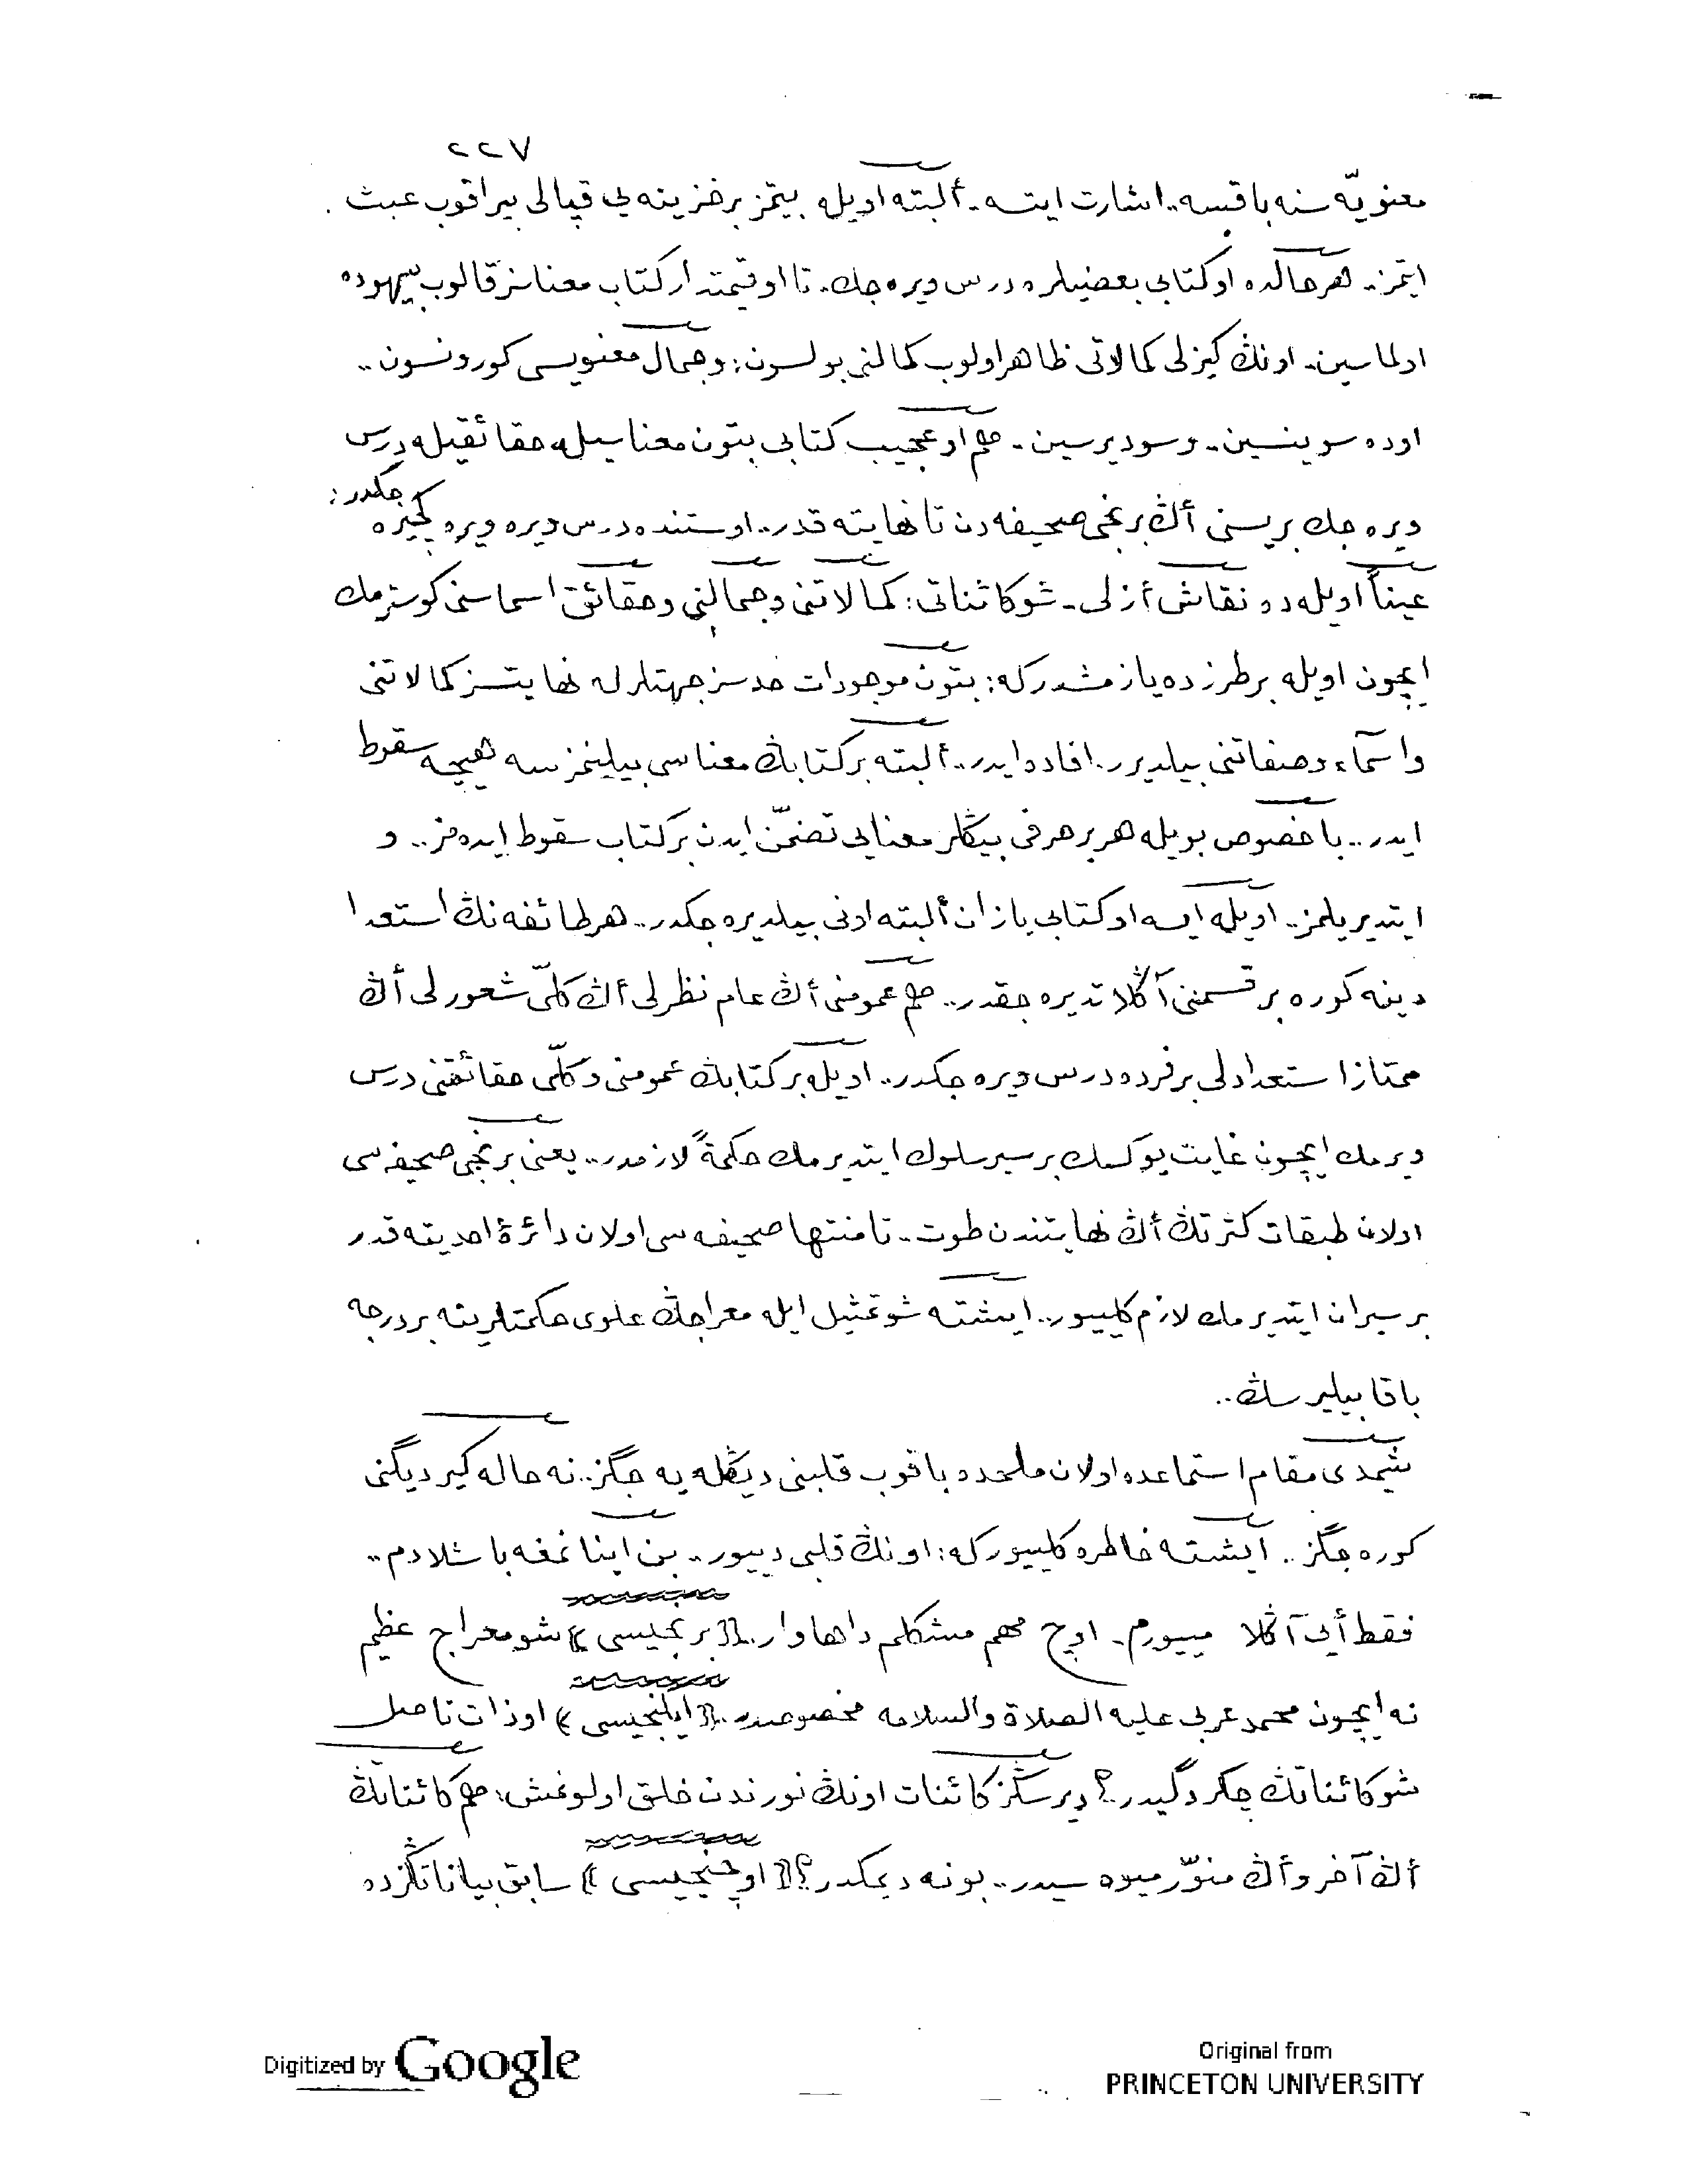 ٢٢٧
معنويّه سنه باقسه.. اشارت ايتسه.. ألبته اويله بيتمز برخزينه يي قپالى بيراقوب عبث
ايتمز.. هر حالده اوكتابى بعضيلره درس ويره جك. تا اوقيمتدار كتاب معناسز قالوب بيهوده
اولماسين.. اونڭ كيزلى كمالاتى ظاهر اولوب كمالنى بولسون؛ وجمال معنويسى كورونسون..
اوده سوينسين.. وسوديرسين.. هم او عجيب كتابى بتون معناسيله حقائقيله درس
ويره جك بريسنى أڭ برنجى صحيفه دن تا نهايته قدر.. اوستنده درس ويره ويره كچيره جكدر:
عيناً اويله ده نقاش أزلى.. شو كائناتى: كمالاتنى وجمالنى وحقائق اسماسنى كوسترمك
ايچون اويله برطرزده يازمشدركه: بتون موجودات حدسز جهتلرله نهايتسز كمالاتنى
واسمآء وصفاتنى بيلديرر. افاده ايدر.. ألبته بركتابڭ معناسى بيلينمزسه هيچه سقوط
ايدر.. باخصوص بويله هر برحرفى بيڭلر معنايى تضمّن ايدن بركتاب سقوط ايده مز.. و
ايتديريلمز.. اويله ايسه اوكتابى يازان ألبته اونى بيلديره جكدر.. هر طائفه نڭ استعدا
دينه كوره برقسمنى آڭلاتديره جقدر.. هم عمومنى أڭ عام نظرلى أڭ كلّى شعورلى أڭ
ممتاز استعدادلى برفرده درس ويره جكدر.. اويله بركتابڭ عمومنى وكلّى حقائقنى درس
ويرمك ايچون غايت يوكسك بر سير سلوك ايتديرمك حكمةً لازمدر.. يعنى برنجى صحيفه سى
اولان طبقات كثرتڭ أڭ نهايتندن طوت.. تا منتها صحيفه سى اولان دائرۀ احديته قدر
بر سيران ايتديرمك لازم كلييور.. ايشته شو تمثيل ايله معراجڭ علوى حكمتلرينه بردرجه
باقا بيليرسڭ..
شيمدى مقام استماعده اولان ملحده باقوب قلبنى ديڭله يه جگز.. نه حاله كيرديگنى
كوره جگز.. ايشته خاطره كلييوركه: اونڭ قلبى دييور.. بن اينانمغه باشلادم..
فقط أيى آڭلا مييورم.. اوچ مهم مشكلم داها وار.. ﴿برنجيسى﴾ شو معراج عظيم
نه ايچون محمد عربى عليه الصلاة والسلامه مخصوصدر.. ﴿ايكنجيسى﴾ اوذات ناصل
شو كائناتڭ چكردگيدر؟ ديرسڭز كائنات اونڭ نورندن خلق اولونمش؛ هم كائناتڭ
أڭ آخر وأڭ منوّر ميوه سيدر.. بو نه ديمكدر؟ ﴿اوچنجيسى﴾ سابق بياناتڭزده
Digitized by Google
Original from
PRINCETON UNIVERSITY